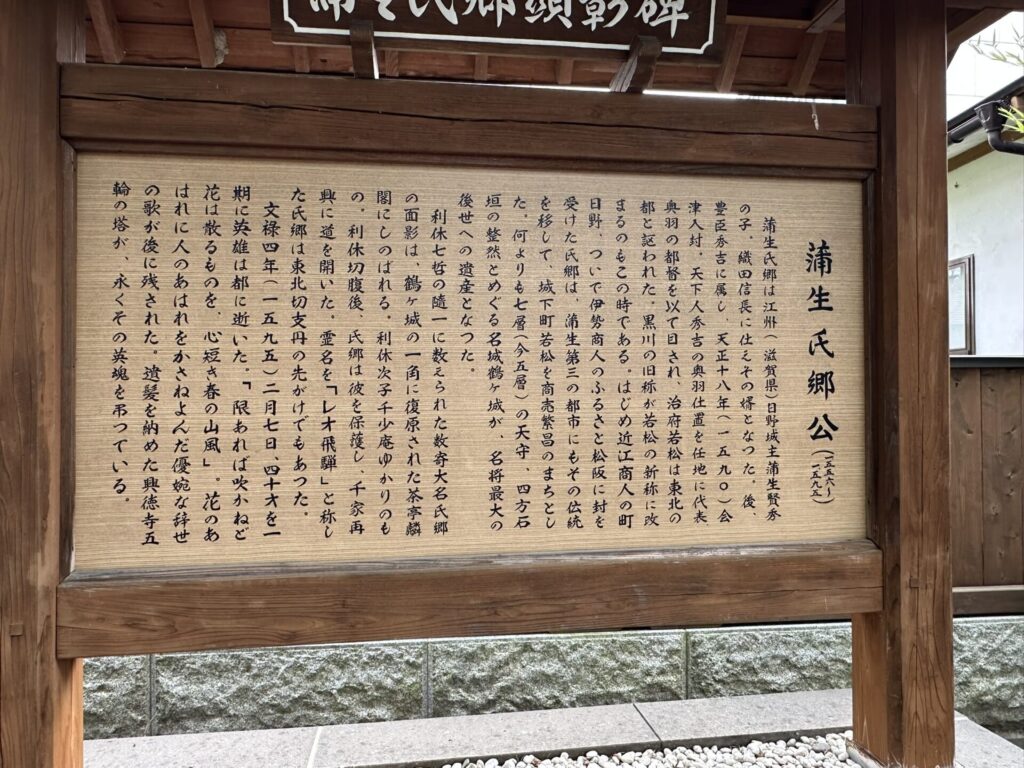 蒲生氏郷顕彰碑
蒲生氏郷公(一五五六〜一五九五)
蒲生氏郷は江州(滋賀県)日野城主蒲生賢秀
の子、織田信長に仕えその婿となつた。後、
豊臣秀吉に属し 天正十八年(一五九〇)会
津入封、天下人秀吉の奥羽仕置を任地に代表
奥羽の都督を以て目され、治府若松は東北の
都と謳われた。黒川の旧称が若松の新称に改
まるのもこの時である。はじめ近江商人の町
日野、ついで伊勢商人のふるさと松阪に封を
受けた氏郷は、蒲生第三の都市にもその伝統
を移して、城下町若松を商売繁昌のまちとし
た。何よりも七層(今五層)の天守、四方石
垣の整然とめぐる名城鶴ヶ城が、名将最大の
後世への遺産となつた。
利休七哲の随一に数えられた数寄大名氏郷
の面影は、鶴ヶ城の一角に復原された茶亭麟
閣にしのばれる。利休次子千少庵ゆかりのも
の、利休切腹後、氏郷は彼を保護し、千家再
興に道を開いた。霊名を「レオ飛騨」と称し
た氏郷は東北切支丹の先がけでもあつた。
文禄四年(一五九五)二月七日、四十才を一
期に英雄は都に逝いた。「限あれば吹かねど
花は散るものを、心短き春の山風」。花のあ
はれに人のあはれをかさねよんだ優婉な辞世
の歌が後に残された。遺髪を納めた興徳寺五
輪の塔が、永くその英魂を弔つている。